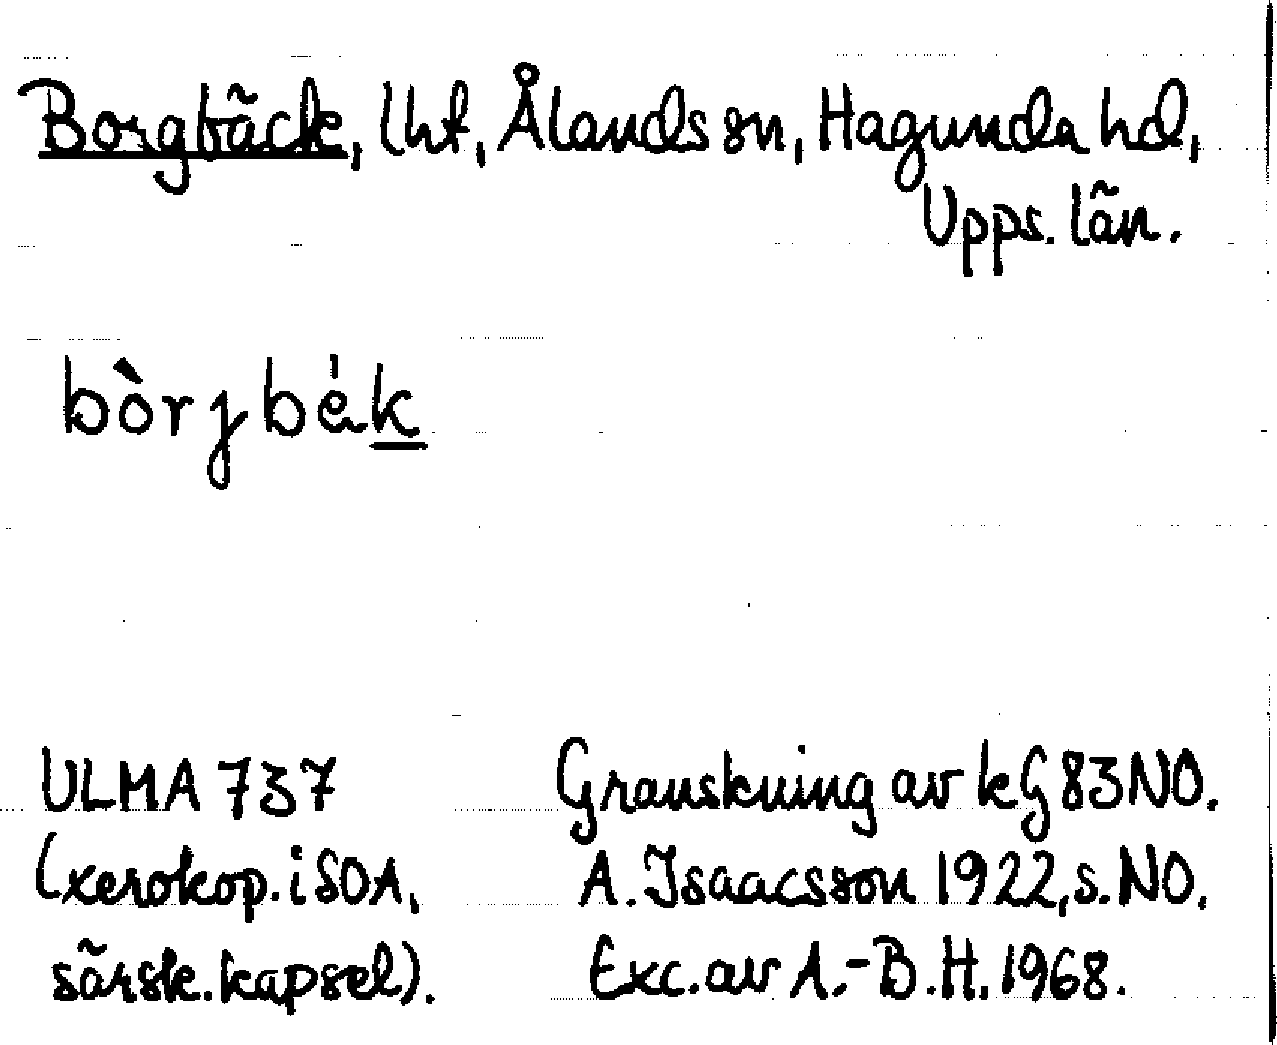 Borgbäck, lht, Ålands sn, Hagunda hd,
Upps. län.
bòrjbèk
ULMA 737
(xerokop. i SOA,
särsk. kapsel).
Granskning av kG 83 NO.
A. Isaacsson 1922, s. NO.
Exc. av A.-B. H. 1968.